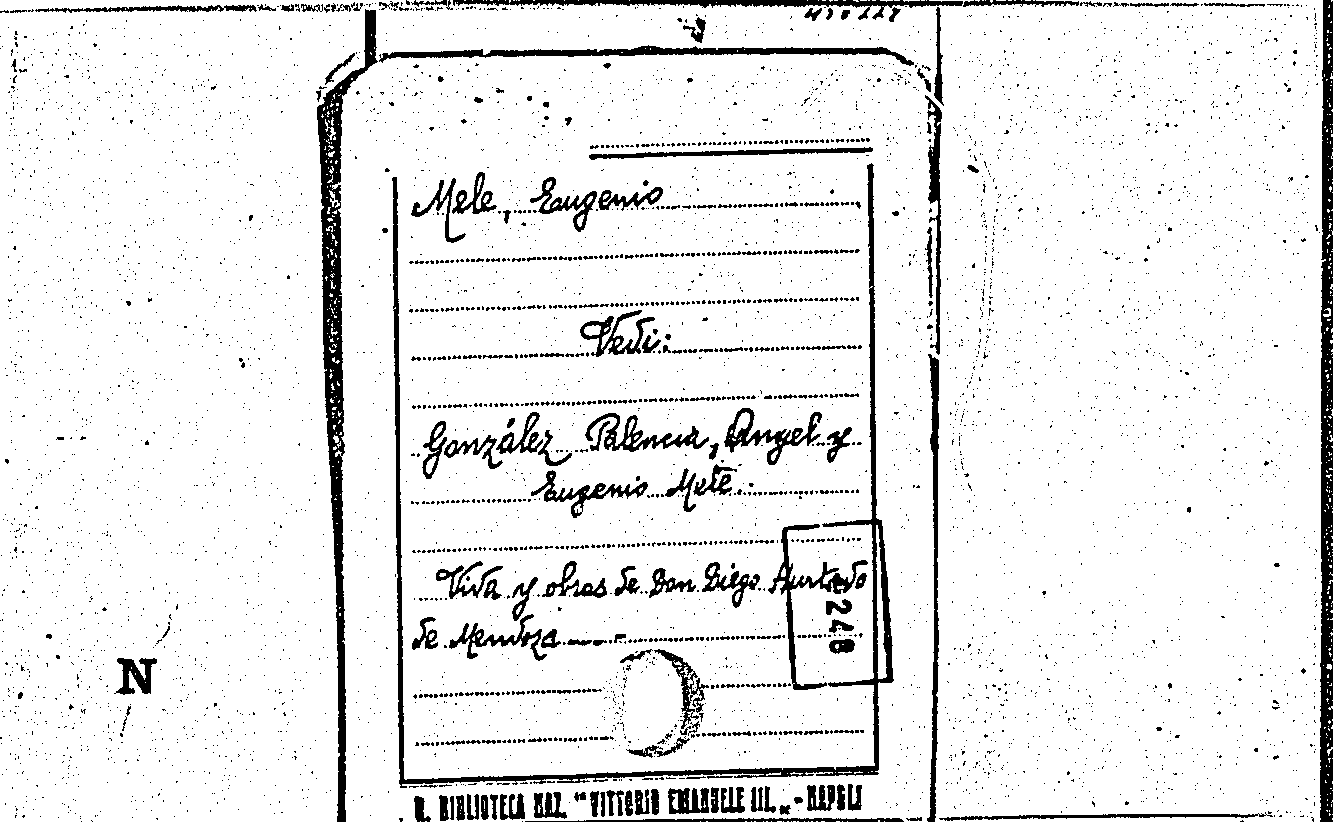 Mele, Eugenio
Vedi:
González Palencia, Angel y
Eugenio Mele.
Vida y obras de Don Diego Hurtado
de Mendoza
248
N
R. BIBLIOTECA NAZ. "VITTORIO EMANUELE III." - NAPOLI